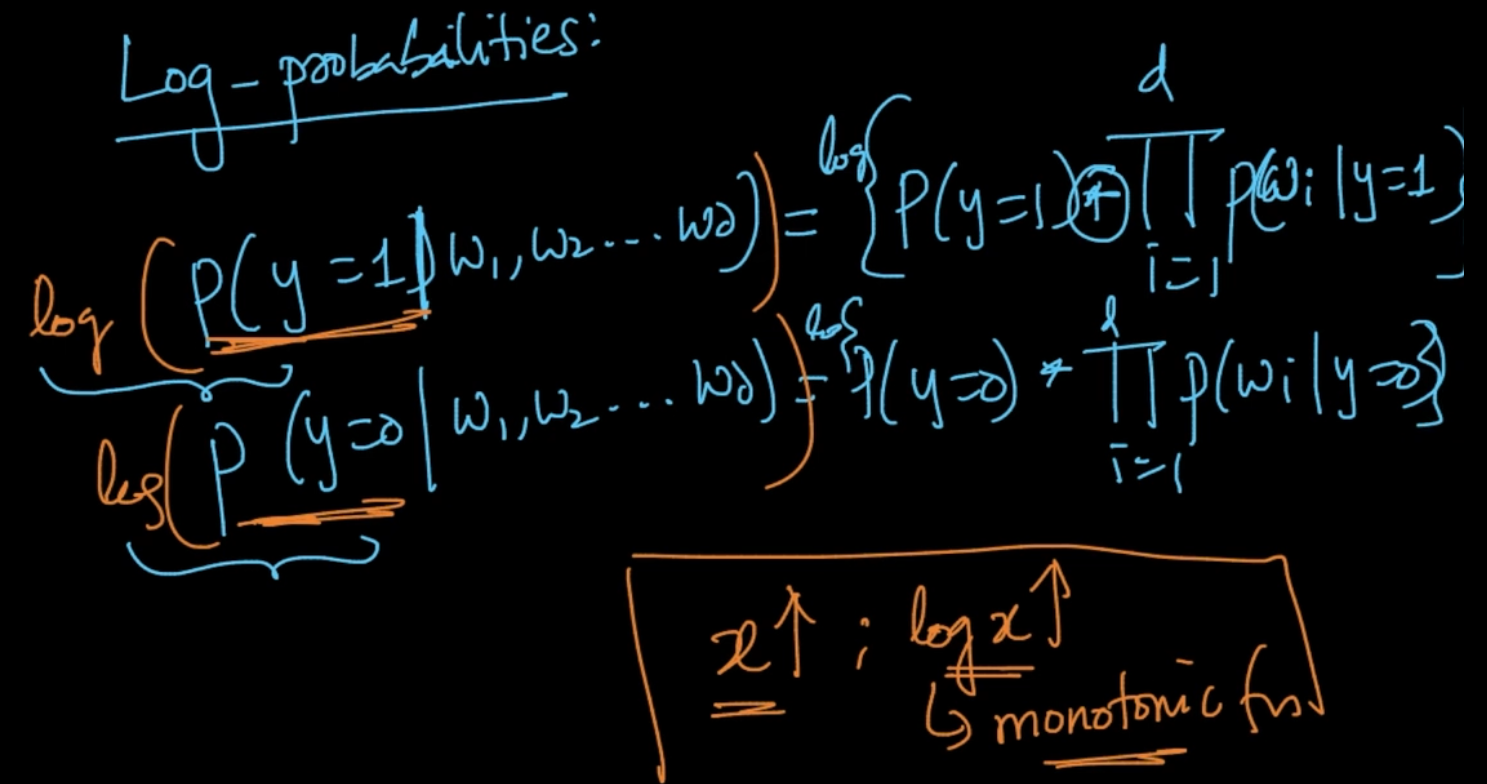 Log-probabilities:
log (P(y=1|w₁,w₂...wd)) = log{P(y=1)*∏ᵢ₌₁ᵈ P(wᵢ|y=1)}
log(P(y=0|w₁,w₂...wd)) = log{P(y=0)*∏ᵢ₌₁ᵈ P(wᵢ|y=0)}
x↑ ; log x↑
↳ monotonic fn.